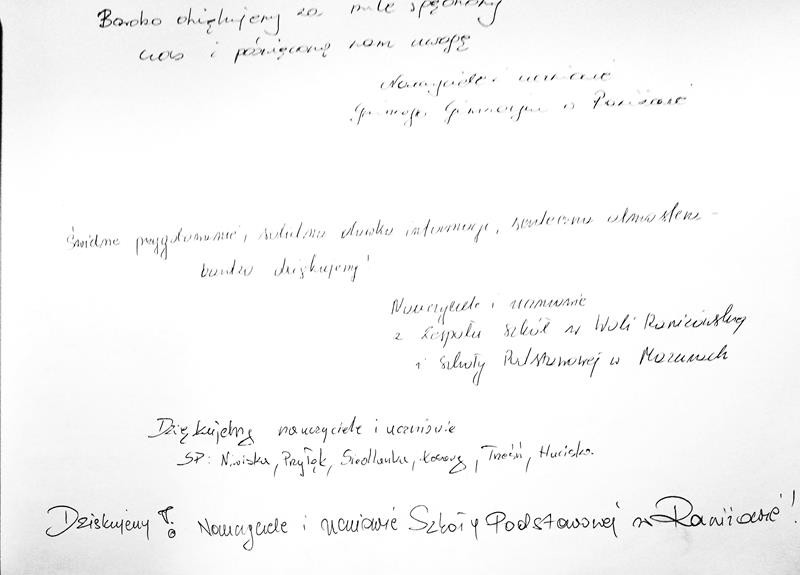 Bardzo dziękujemy za mile spędzony
czas i poświęconą nam uwagę
Nauczyciele i uczniowie
Gminnego Gimnazjum w Raniżowie
Świetne przygotowanie, solidna dawka informacji, serdeczna atmosfera -
bardzo dziękujemy!
Nauczyciele i uczniowie
z Zespołu Szkół w Woli Raniżowskiej
i Szkoły Podstawowej w Mazurach
Dziękujemy nauczyciele i uczniowie
SP: Niwiska, Przyłęk, Siedlanka, Kosowy, Trześń, Hucisko.
Dziękujemy! Nauczyciele i uczniowie Szkoły Podstawowej w Raniżowie!